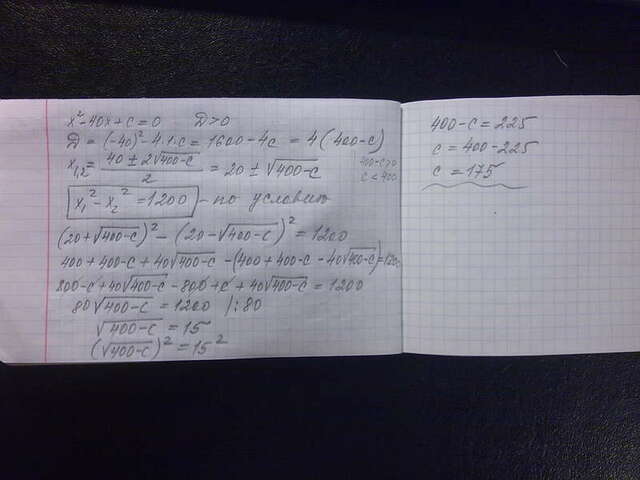 x² - 40x + c = 0   D > 0
D = (-40)² - 4·1·c = 1600 - 4c = 4(400 - c)
x₁,₂ = (40 ± 2√(400-c))/2 = 20 ± √(400-c)
400-c>0
c < 400
x₁² - x₂² = 1200 - по условию
(20 + √(400-c))² - (20 - √(400-c))² = 1200
400 + 400 - c + 40√(400-c) - (400 + 400 - c - 40√(400-c)) = 1200
800 - c + 40√(400-c) - 800 + c + 40√(400-c) = 1200
80√(400-c) = 1200 /:80
√(400-c) = 15
(√(400-c))² = 15²
400 - c = 225
c = 400 - 225
c = 175